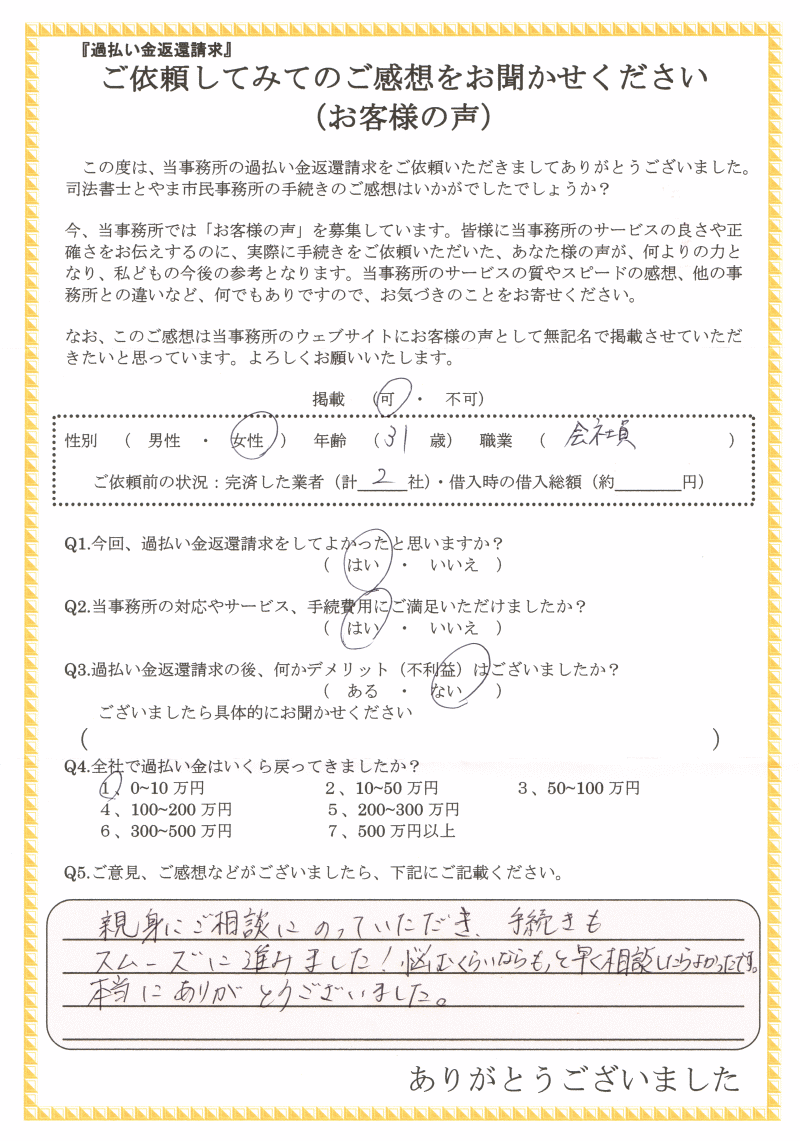 『過払い金返還請求』
ご依頼してみてのご感想をお聞かせください
（お客様の声）
この度は、当事務所の過払い金返還請求をご依頼いただきましてありがとうございました。
司法書士とやま市民事務所の手続きのご感想はいかがでしたでしょうか？
今、当事務所では「お客様の声」を募集しています。皆様に当事務所のサービスの良さや正
確さをお伝えするのに、実際に手続きをご依頼いただいた、あなた様の声が、何よりの力と
なり、私どもの今後の参考となります。当事務所のサービスの質やスピードの感想、他の事
務所との違いなど、何でもありですので、お気づきのことをお寄せください。
なお、このご感想は当事務所のウェブサイトにお客様の声として無記名で掲載させていただ
きたいと思っています。よろしくお願いいたします。
掲載　（可　・　不可）
性別　（　男性　・　女性　）　年齢　（31　歳）　職業　（　会社員　）
ご依頼前の状況：完済した業者（計　2　社）・借入時の借入総額（約＿＿＿＿円）
Q1.今回、過払い金返還請求をしてよかったと思いますか？
（　はい　・　いいえ　）
Q2.当事務所の対応やサービス、手続費用にご満足いただけましたか？
（　はい　・　いいえ　）
Q3.過払い金返還請求の後、何かデメリット（不利益）はございましたか？
（　ある　・　ない　）
ございましたら具体的にお聞かせください
（　）
Q4.全社で過払い金はいくら戻ってきましたか？
１、0~10 万円　２、10~50 万円　３、50~100 万円
４、100~200 万円　５、200~300 万円
６、300~500 万円　７、500 万円以上
Q5.ご意見、ご感想などがございましたら、下記にご記載ください。
親身にご相談にのっていただき、手続きも
スムーズに進みました！悩むくらいならもっと早く相談したらよかったです。
本当にありがとうございました。
ありがとうございました